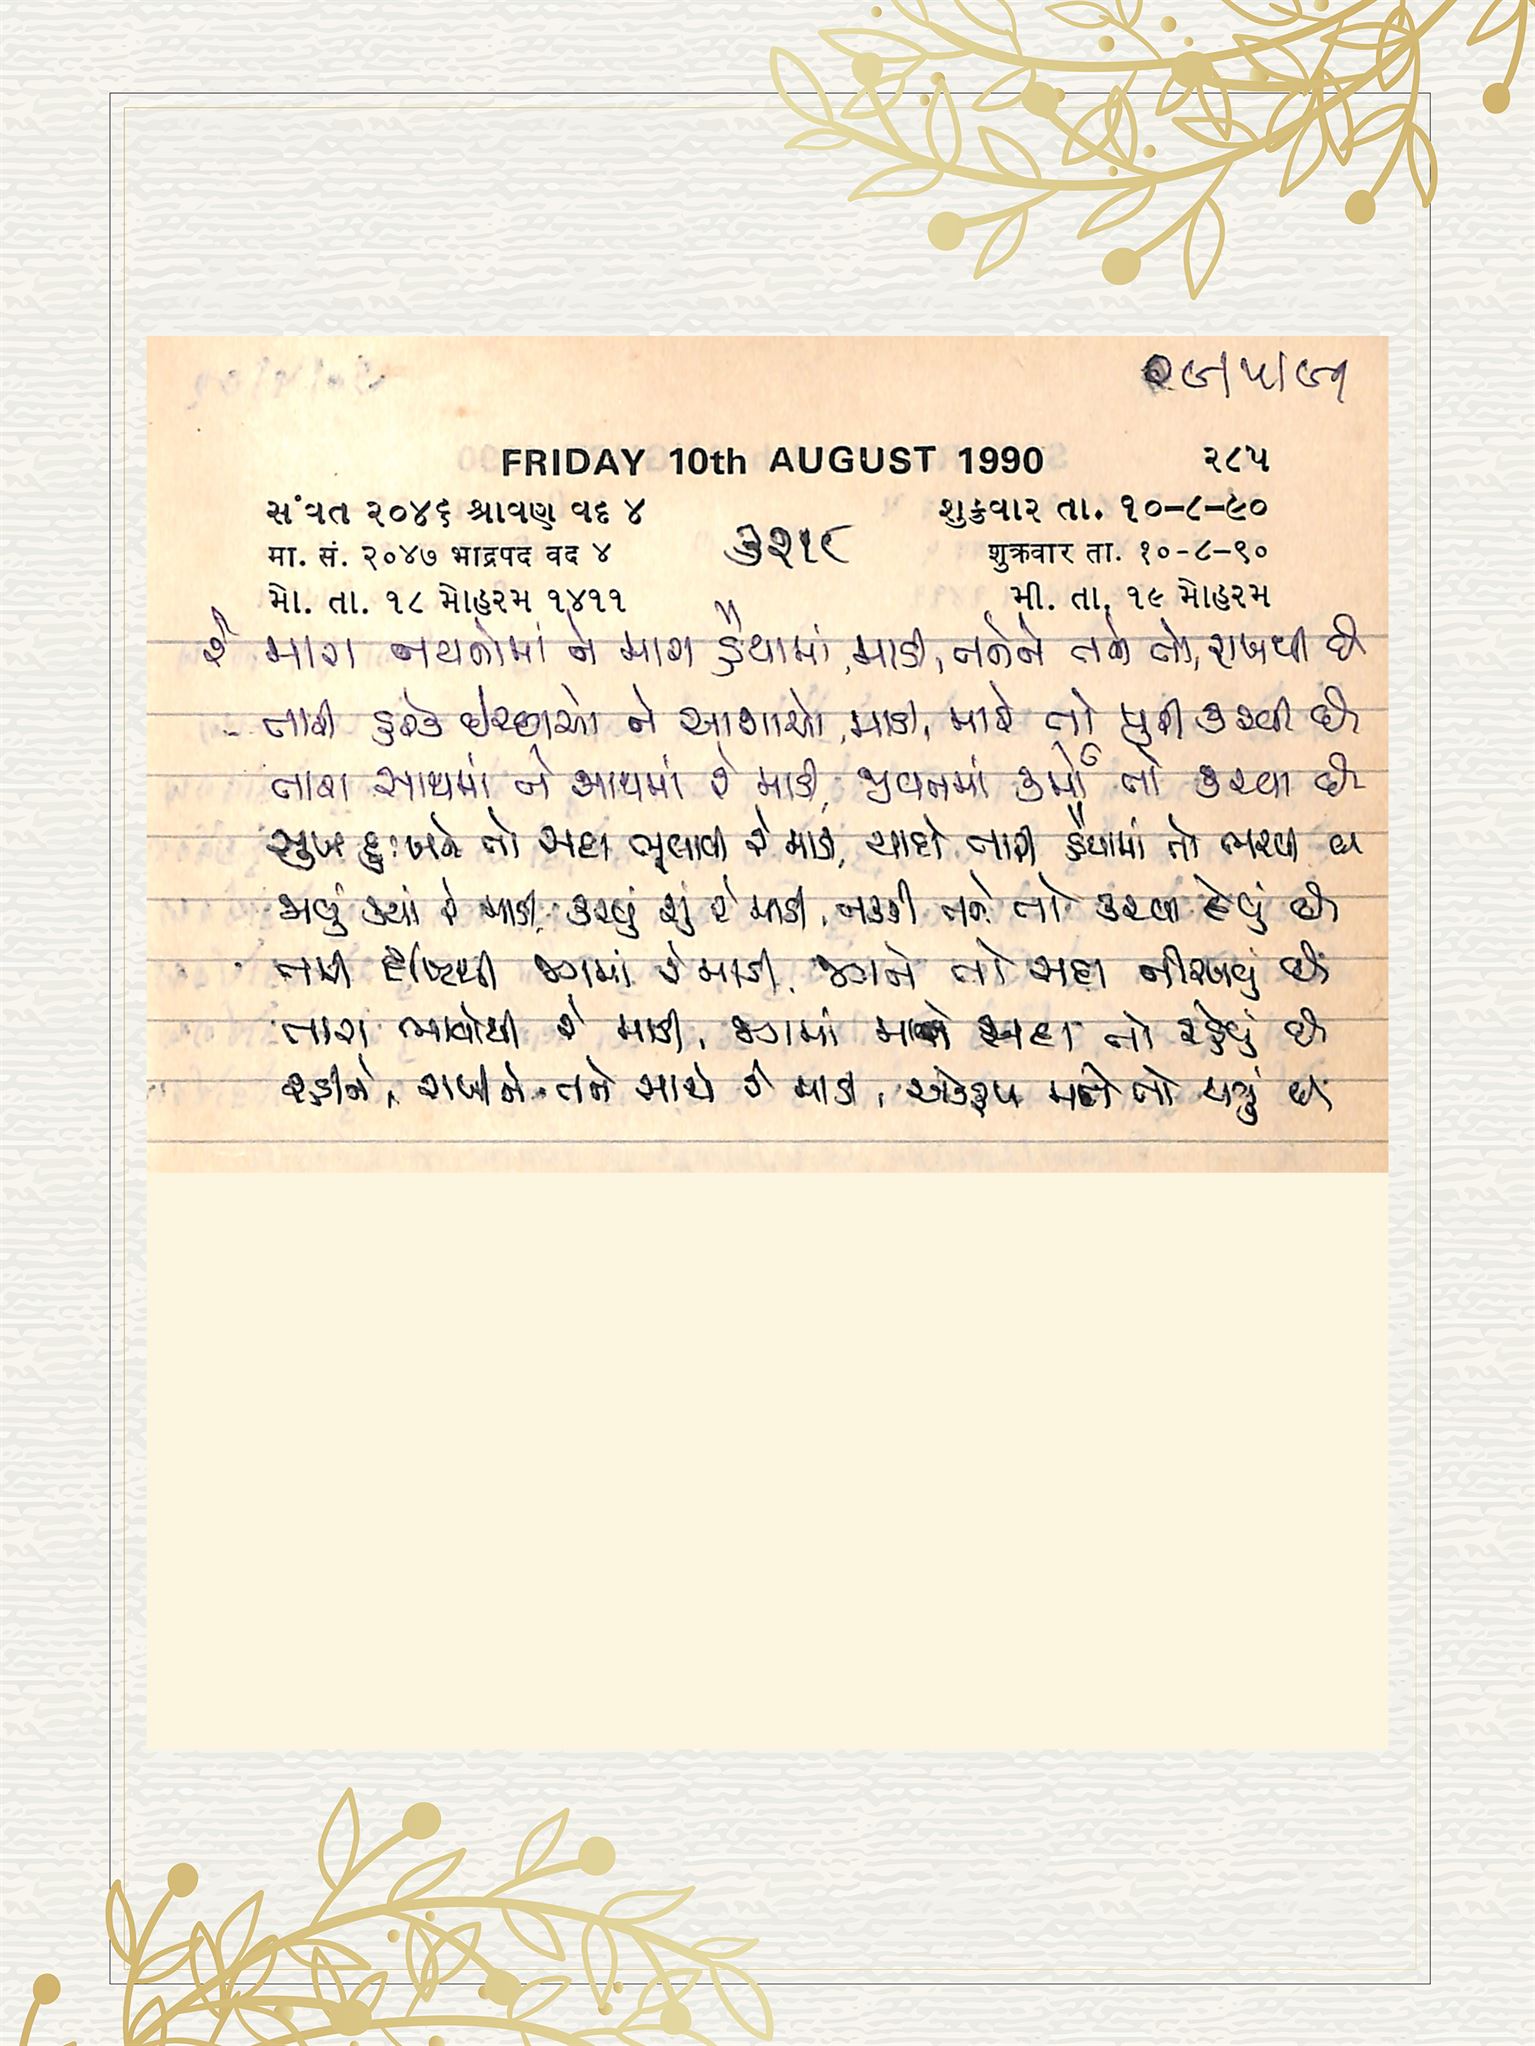 ૨૯/૫/૯૧
FRIDAY 10th AUGUST 1990 ૨૮૫
સંવત ૨૦૪૬ શ્રાવણ વદ ૪ શુક્રવાર તા. ૧૦-૮-૯૦
મા. સં. ૨૦૪૭ भाद्रपद वद ४ शुक्रवार ता. १०-८-९०
મો. તા. ૧૮ મોહરમ ૧૪૧૧ મી. તા. ૧૯ મોહરમ
રે મારા નયનોમાં ને મારા હૈયામાં, માડી, તને ને તને તો, રાખવી છે
તારી ઇચ્છાઓ ને આશાઓ, માડી, મારે તો પૂરી કરવી છે
તારા સાથમાં ને સાથમાં રે માડી, જીવનમાં કર્મો તો કરવા છે
સુખ દુઃખને તો સદા ભૂલાવી રે માડી, યાદો તારી હૈયામાં તો ભરવી છે
જાવું ક્યાં રે માડી, કરવું શું રે માડી, નક્કી તને તો કરવા દેવું છે
તારી દૃષ્ટિથી જગમાં રે માડી, જગને તો સદા નીરખવું છે
તારા ભાવોથી રે માડી, જગમાં મારે સદા તો રહેવું છે
રહીને, રાખીને તને સાથે રે માડી, એકરૂપ મારે તો થાવું છે